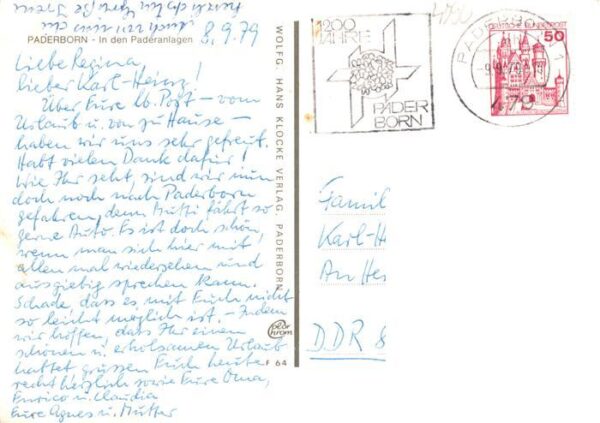 PADERBORN - In den Paderanlagen
8.9.79
Liebe Regina,
lieber Karl-Heinz!
Über Eure lb. Post - vom
Urlaub u. von zu Hause -
haben wir uns sehr gefreut.
Habt vielen Dank dafür!
Wie Ihr seht, sind wir nun
doch noch nach Paderborn
gefahren, denn Mutti fährt so
gerne Auto. Es ist doch schön,
wenn man sich hier mit
allen mal wiedersehen und
ausgiebig sprechen kann.
Schade dass es mit Euch nicht
so leicht möglich ist. - Indem
wir hoffen, dass Ihr einen
schönen u. erholsamen Urlaub
hattet grüssen Euch heute
recht herzlich sowie Eure Oma,
Enrico u. Claudia
Eure Agnes u. Mutter
WOLFG. HANS KLOCKE VERLAG, PADERBORN
F 64
1200
JAHRE
PADER
BORN
PADERBORN 1
479
DEUTSCHE BUNDESPOST
50
Famil
Karl-H
An Hes
DDR 8